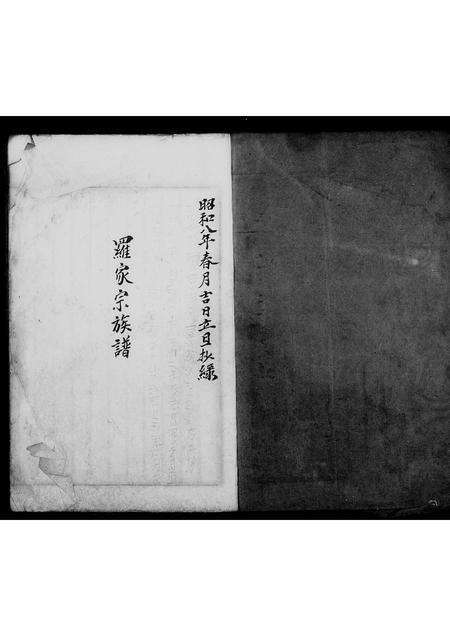 昭和八年春月吉日立旦抄綠
羅家宗族譜